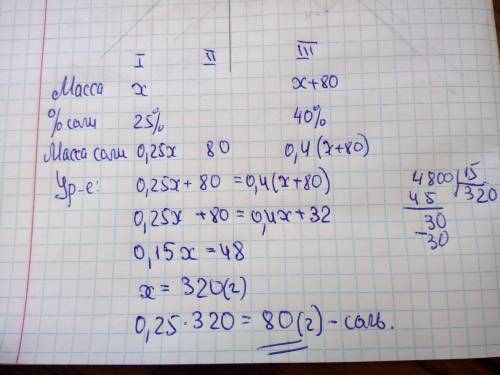 I II III
Масса x x+80
% соли 25% 40%
Масса соли 0,25x 80 0,4(x+80)
Ур-е: 0,25x+80=0,4(x+80)
0,25x+80=0,4x+32
0,15x=48
x=320(г)
0,25·320=80(г)-соль.
4800 15
45 320
30
-30